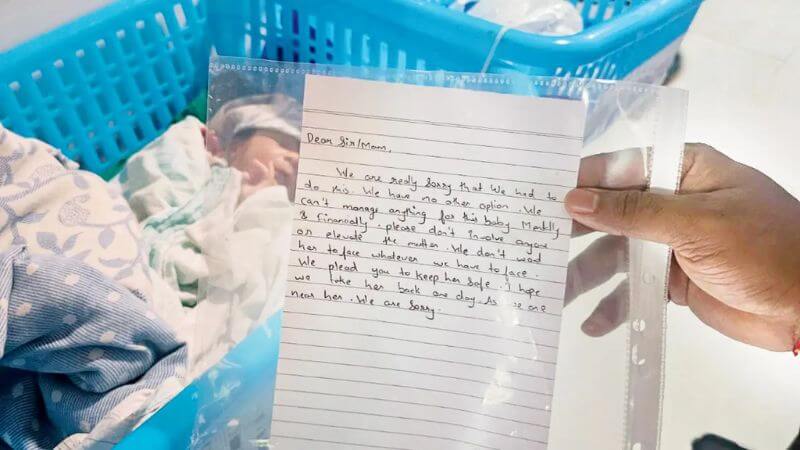 Dear Sir/Mam,
We are really sorry that we had to
do this. We have no other option. We
can't manage anything for this baby Mentally
& Financially. please don't involve anyone
or elevate the matter. We don't want
her to face whatever we have to face.
We plead you to keep her safe. I hope
we take her back one day. As we are
near her. We are sorry.